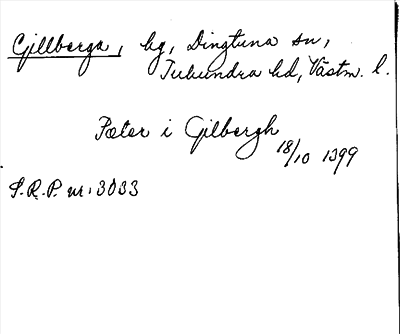 Gillberga, hg, Dingtuna sn,
Tuhundra hd, Västm. l.
Peter i Gilbergh
18/10 1399
S.R.P. nr. 3033